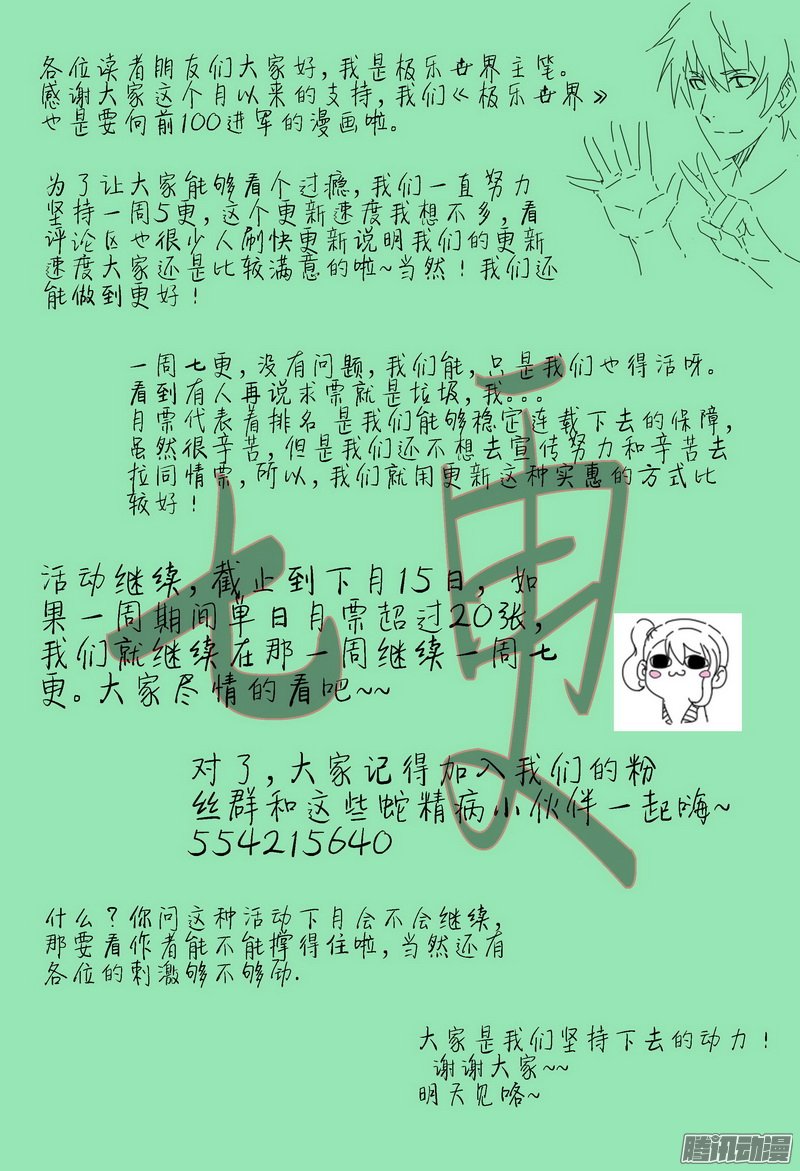 各位读者朋友们大家好，我是极乐世界主笔。
感谢大家这个月以来的支持，我们《极乐世界》
也是要向前100进军的漫画啦。
为了让大家能够看个过瘾，我们一直努力
坚持一周5更，这个更新速度我想不多，看
评论区也很少人刷快更新说明我们的更新
速度大家还是比较满意的啦~当然！我们还
能做到更好！
一周七更，没有问题，我们能，只是我们也得活呀。
看到有人再说求票就是垃圾，我。。。
月票代表着排名 是我们能够稳定连载下去的保障，
虽然很辛苦，但是我们还不想去宣传努力和辛苦去
拉同情票，所以，我们就用更新这种实惠的方式比
较好！
七更
活动继续，截止到下月15日，如
果一周期间单日月票超过20张，
我们就继续在那一周继续一周七
更。大家尽情的看吧~~
对了，大家记得加入我们的粉
丝群和这些蛇精病小伙伴一起嗨~
554215640
什么？你问这种活动下月会不会继续，
那要看作者能不能撑得住啦，当然还有
各位的刺激够不够劲.
大家是我们坚持下去的动力！
谢谢大家~~
明天见咯~
腾讯动漫